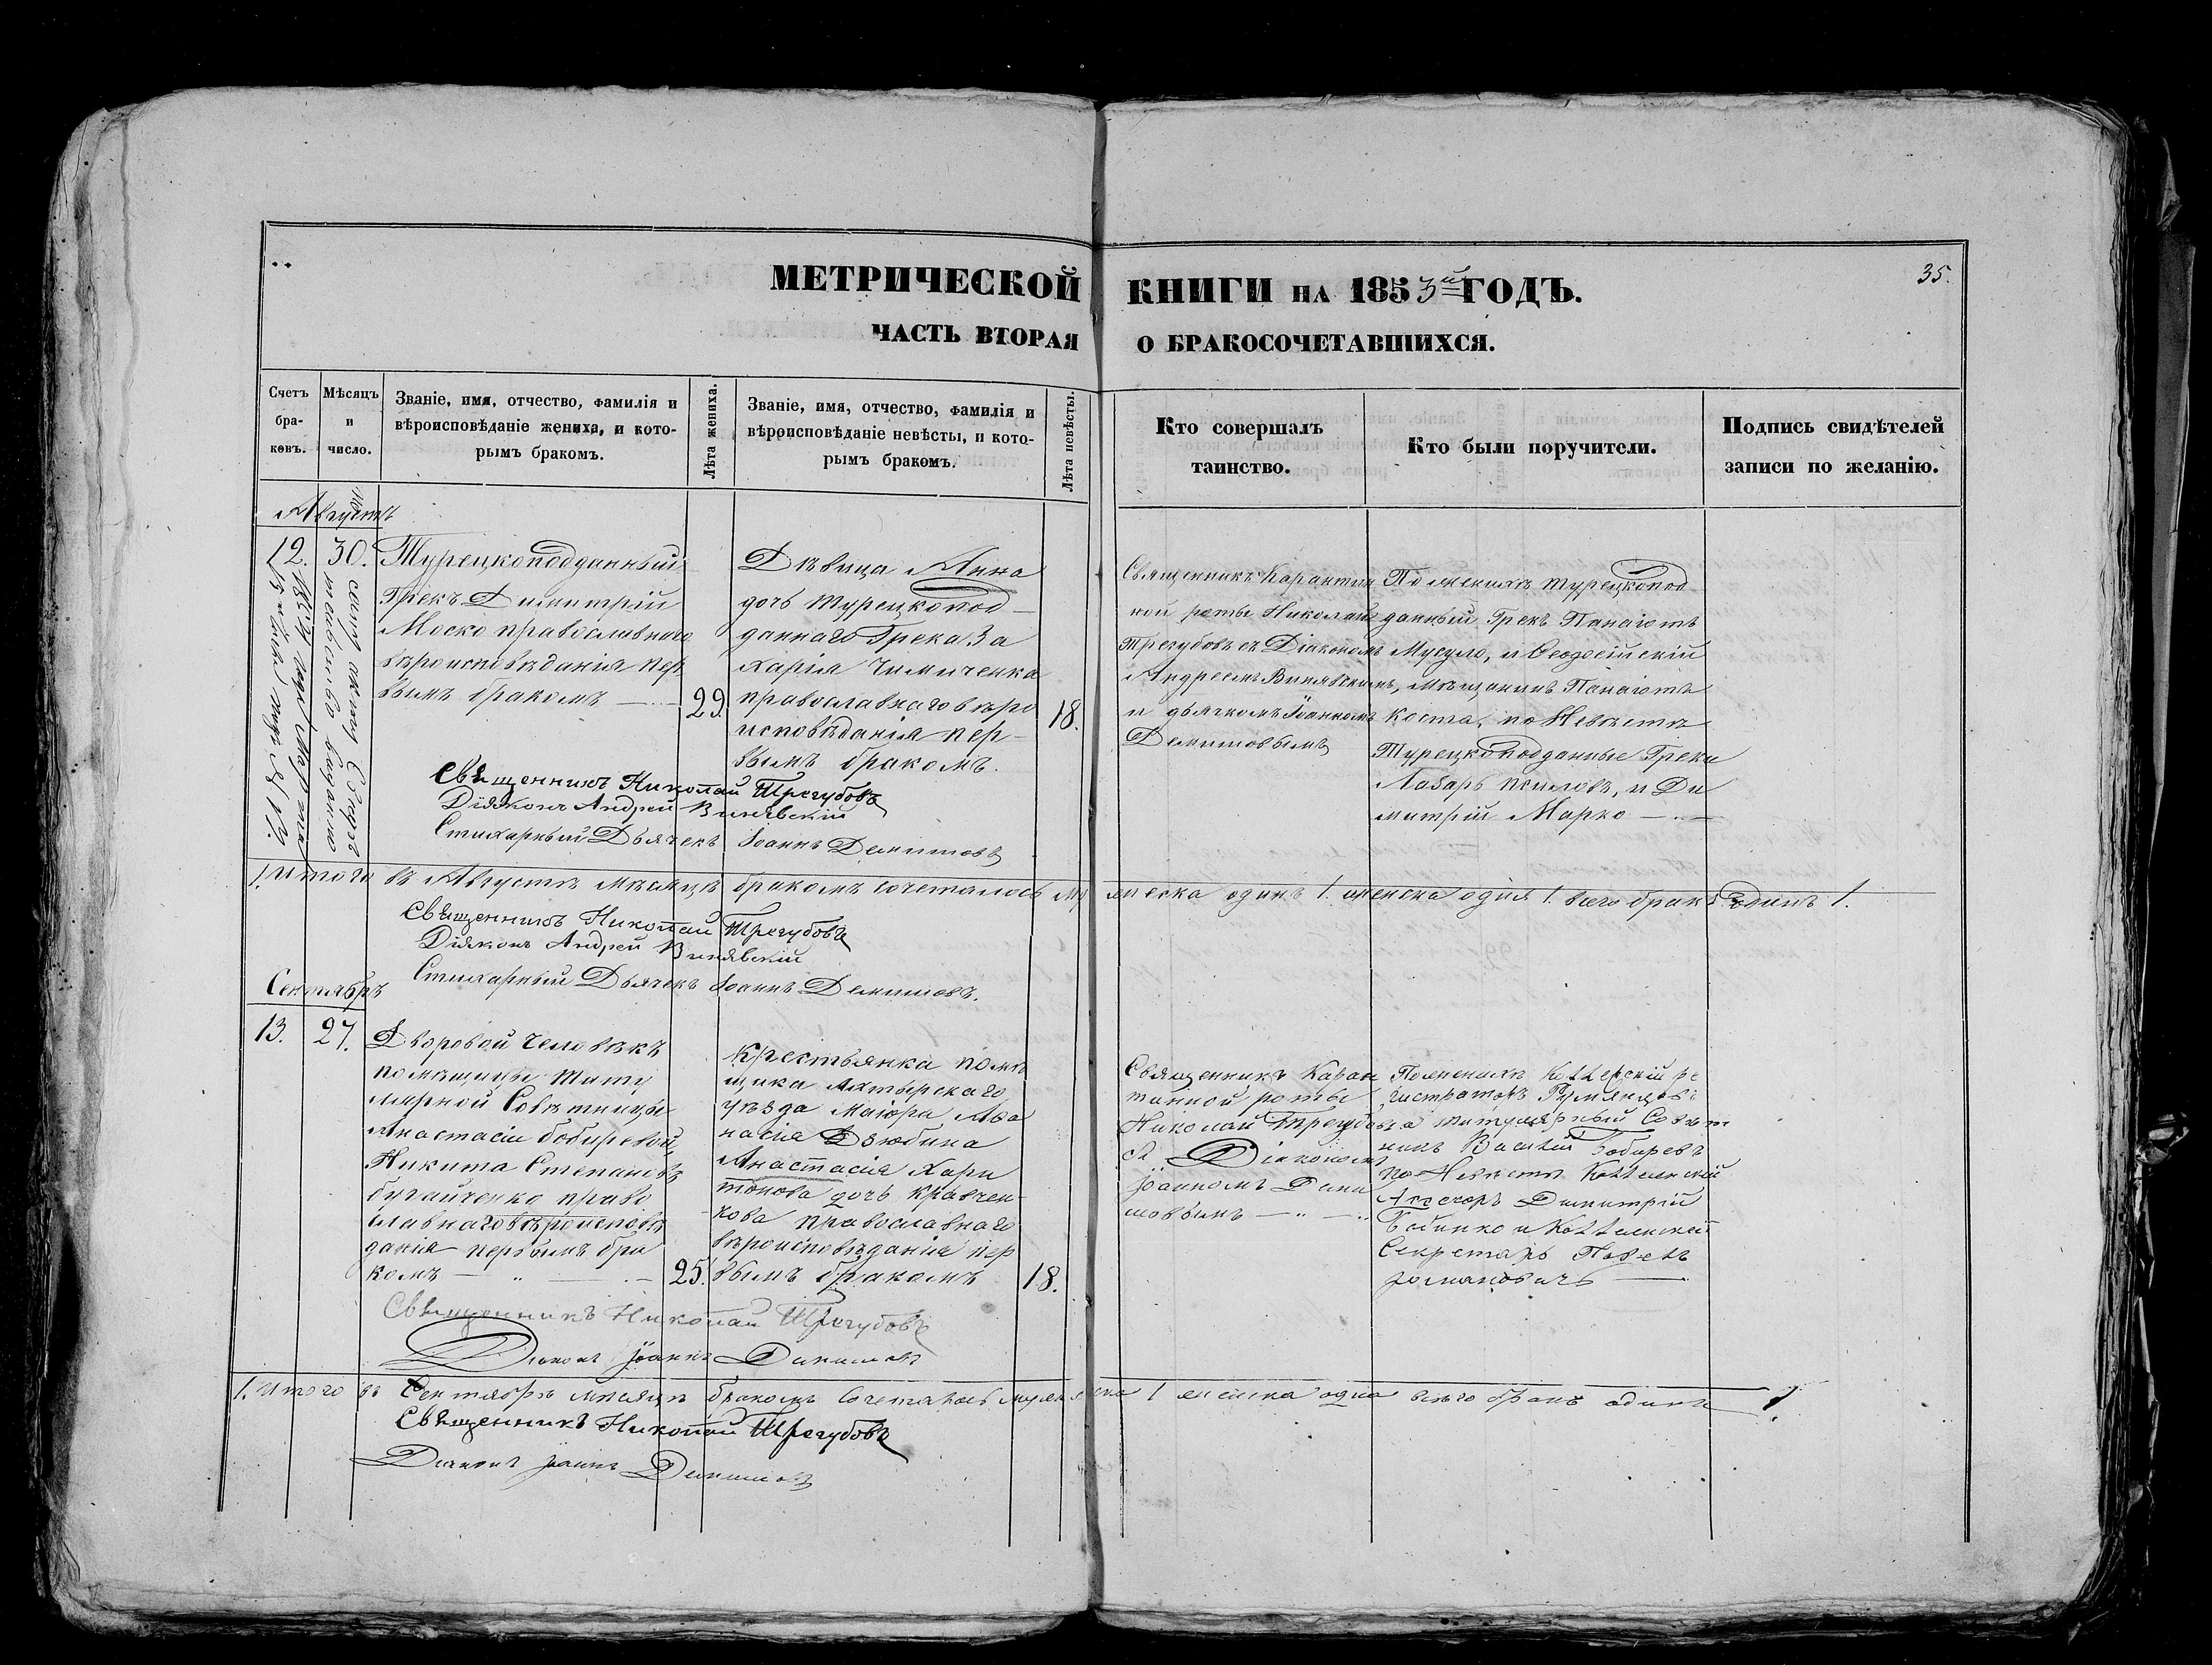 МЕТРИЧЕСКОЙ КНИГИ НА 1853й ГОДЪ.
35.
ЧАСТЬ ВТОРАЯ О БРАКОСОЧЕТАВШИХСЯ.
Счетъ бра-ковъ.
Мѣсяцъ и число.
Званіе, имя, отчество, фамилія и
вѣроисповѣданіе жениха, и кото-
рымъ бракомъ.
Лѣта жениха.
Званіе, имя, отчество, фамилія и
вѣроисповѣданіе невѣсты, и кото-
рымъ бракомъ.
Лѣта невѣсты.
Кто совершалъ
таинство.
Кто были поручители.
Подпись свидѣтелей
записи по желанію.
Августъ
12. 30.
Турецкоподданный
Грекъ Димитрій
Моско православнаго
вѣроисповѣданія пер
вымъ бракомъ
29.
Дѣвица Анна
дочь турецкопод-
даннаго Грека За
харія Чимиченка
православнаго вѣро
исповѣданія пер-
вымъ бракомъ.
18.
Священникъ Карантин
ной роты Николай
Трегубовъ съ Діакономъ
Андреемъ Винявскимъ,
и дьячкомъ Іоанномъ
Демишовымъ
По женихѣ турецкопод
данный Грекъ Панаіотъ
Мусуло, и Ѳеодосійскій
мѣщанинъ Панаіотъ
Коста, по Невѣстѣ
Турецкоподданные Греки
Лазарь Псиловъ, и Ди
митрій Марко
Священникъ Николай Трегубовъ
Діяконъ Андрей Винявскій
Стихарный Дьячекъ Іоаннъ Демишовъ
1. Итого въ Августѣ мѣсяцѣ бракомъ сочеталось му жеска одинъ 1. женска одна 1. всего бракъ одинъ 1.
Священникъ Николай Трегубовъ
Діяконъ Андрей Винявскій
Стихарный Дьячекъ Іоаннъ Демишовъ.
Сентябрь
13. 27.
Дворовой человѣкъ
помѣщицы титу
лярной Совѣтницы
Анастасіи Бобыревой,
Никита Степановъ
Бугайченко право
славнаго вѣроисповѣ
данія первымъ бра
комъ
25.
Крестьянка помѣ
щика Ахтырскаго
уѣзда Маіора Аѳа
насія Дзюбина
Анастасія Хари
тонова дочь Кравчен-
кова православнаго
вѣроисповѣданія пер
вымъ бракомъ
18.
Священникъ Каран
тинной роты
Николай Трегубовъ
съ Діакономъ
Іоанномъ Деми
шовымъ
По женихѣ Коллежскій ре
гистраторъ Румянцовъ
и титулярный Совѣт
никъ Василій Бобыревъ
по Невѣстѣ Коллежскій
Ассесоръ Димитрій
и Коллежскій
Секретарь Павелъ
Романовичъ
Священникъ Николай Трегубовъ
Діаконъ Іоаннъ Демишовъ
1. Итого въ Сентябрѣ мѣсяцѣ бракомъ сочеталось мужеска 1 женска одна всего бракъ одинъ 1.
Священникъ Николай Трегубовъ
Діаконъ Іоаннъ Демишовъ